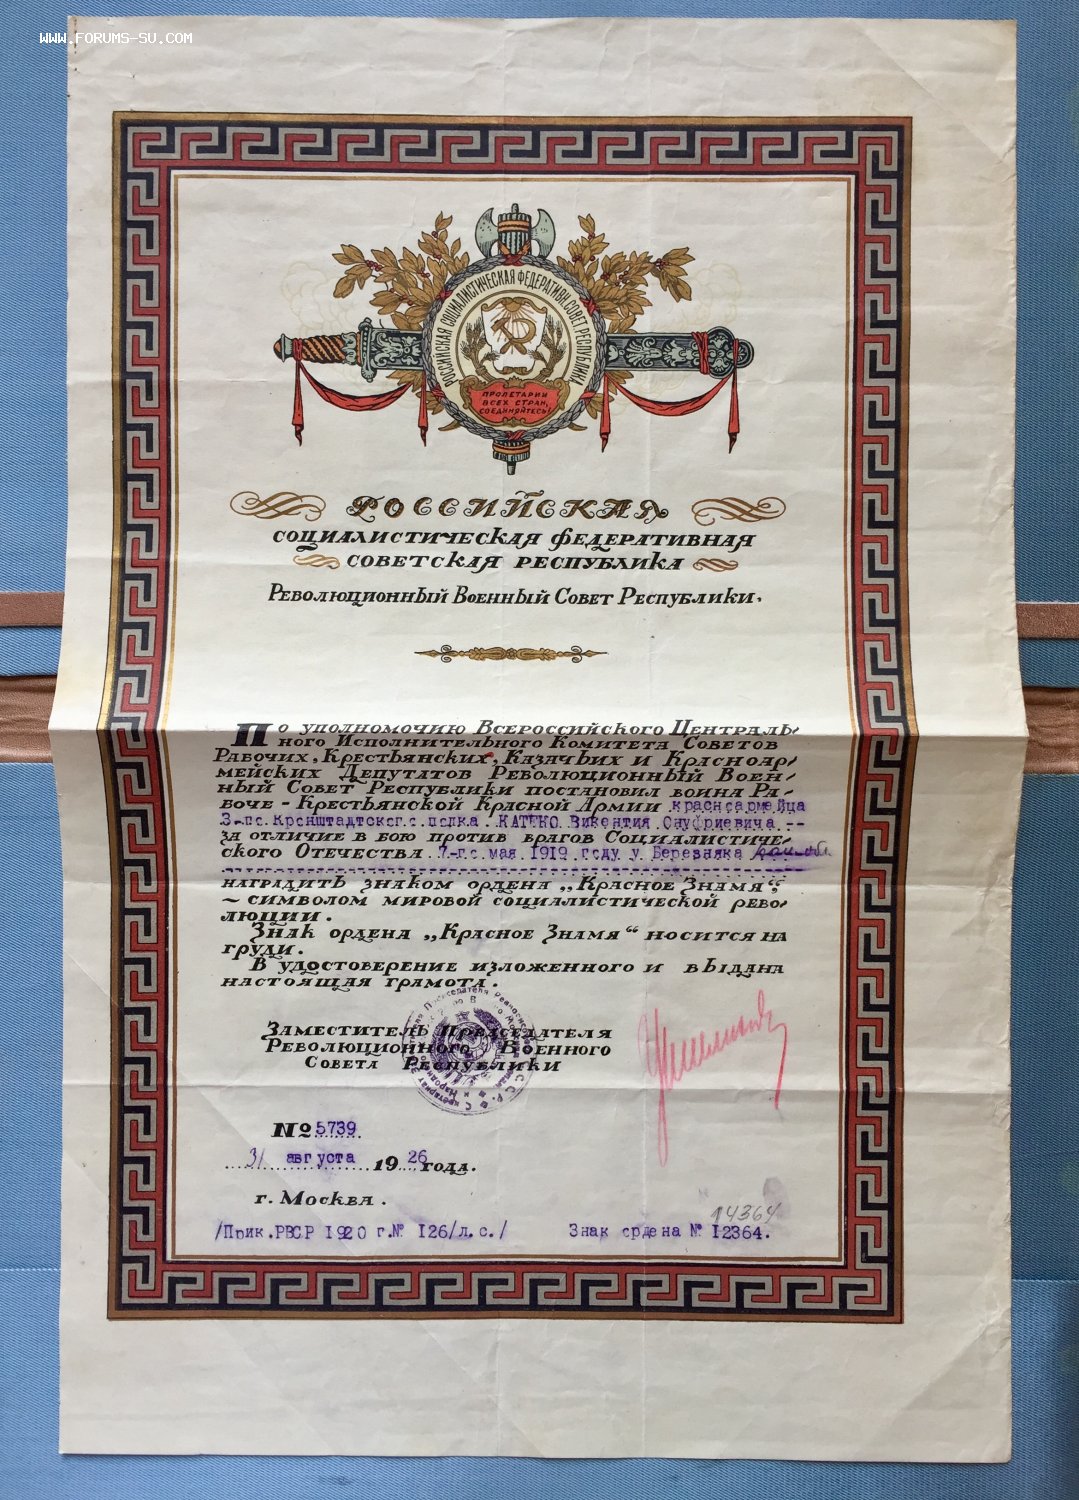 WWW.FORUMS-SU.COM
РОССИЙСКАЯ СОЦИАЛИСТИЧЕСКАЯ ФЕДЕРАТИВН СОВЕТ РЕСПУБЛИКА
ПРОЛЕТАРИИ
ВСЕХ СТРАН,
СОЕДИНЯЙТЕСЬ!
РОССИЙСКАЯ
СОЦИАЛИСТИЧЕСКАЯ ФЕДЕРАТИВНАЯ
СОВЕТСКАЯ РЕСПУБЛИКА
РЕВОЛЮЦИОННЫЙ ВОЕННЫЙ СОВЕТ РЕСПУБЛИКИ.
По уполномочию Всероссийского Централь-
ного Исполнительного Комитета Советов
Рабочих, Крестьянских, Казачьих и Красноар-
мейских Депутатов Революционный Воен-
ный Совет Республики постановил воина Ра-
боче-Крестьянской Красной Армии красноармейца
3-го Кронштадтского полка КАТЕКО Викентия Онуфриевича --
за отличие в бою против врагов Социалистиче-
ского Отечества 7-го мая 1919 году у Березняка
наградить знаком ордена „Красное Знамя“
~ символом мировой социалистической рево-
люции.
Знак ордена „Красное Знамя“ носится на
груди.
В удостоверение изложенного и выдана
настоящая грамота.
Заместитель Председателя
Революционного Военного
Совета Республики
№ 5739
31 августа 1926 года.
г. Москва.
14364
/Прик.РВСР 1920 г.№ 126/л.с./ Знак ордена № 12364.